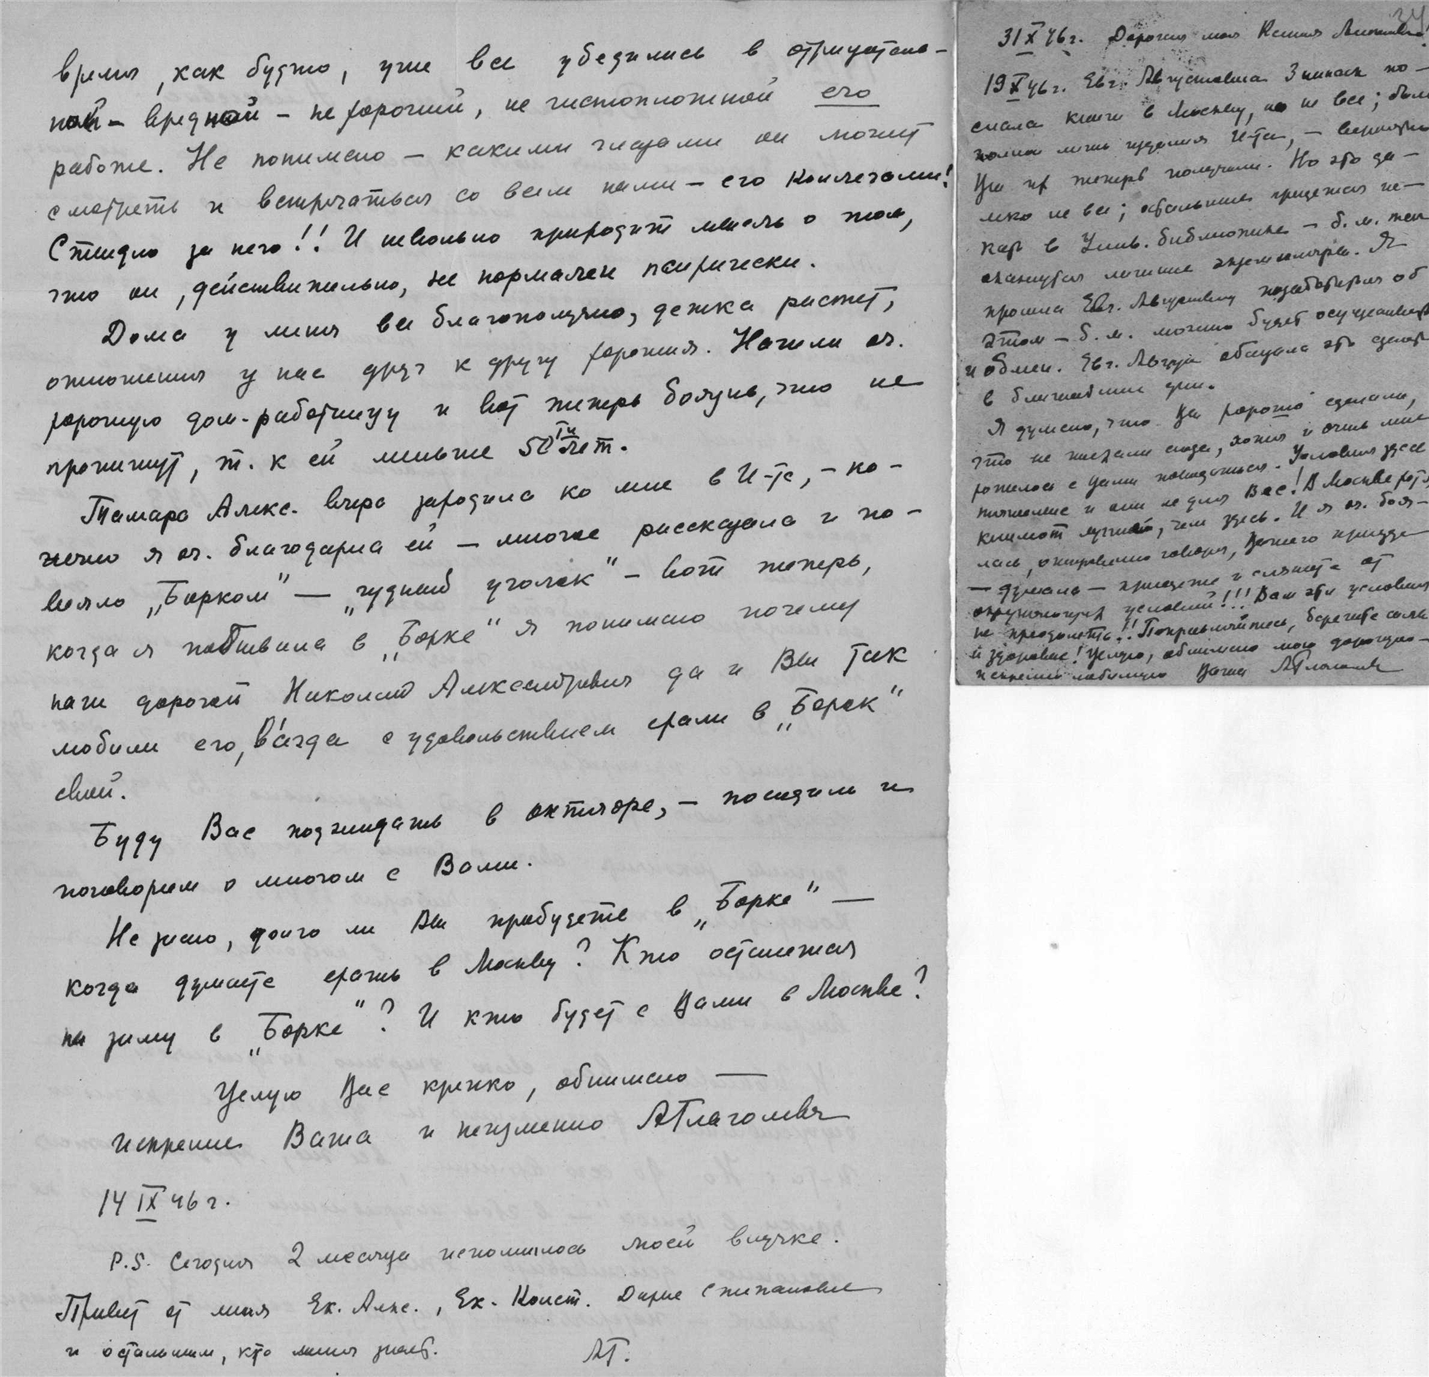 время, как будто, уже все убедились в отрицатель-
ной - вредной - не хорошей, не чистоплотной его
работе. Не понимаю - какими глазами он может
смотреть и встречаться со всеми нами - его коллегами!
Стыдно за него!! И невольно приходит мысль о том,
что он, действительно, не нормален психически.
Дома у меня все благополучно, детка растет,
отношения у нас друг к другу хорошия. Нашли оч.
хорошую дом-работницу и вот теперь боимся, что не
пропишут, т. к. ей меньше 50ти лет.
Тамара Алекс. вчера заходила ко мне в И-те, - ко-
нечно я оч. благодарна ей - многое рассказала и по-
веяло „Борком" — „чудный уголок" - вот теперь,
когда я побывала в „Борке" я понимаю почему
наш дорогой Николай Александрович да и Вы так
любили его, всегда с удовольствием ехали в „Борок"
свой.
Буду Вас поджидать в октябре, - посидим и
поговорим о многом с Вами.
Не знаю, долго ли Вы пробудете в „Борке" —
когда думаете ехать в Москву? Кто останется
на зиму в „Борке"? И кто будет с Вами в Москве?
Целую Вас крепко, обнимаю —
искренне Ваша и неизменно АГлаголева
14 IX 46 г.
P.S. Сегодня 2 месяца исполнилось моей внучке.
Привет от меня Ек. Алекс., Ек. Конст. Дарье Степановне
и остальным, кто меня знает.
АГ.
34
31 X 46 г. Дорогая моя Ксения
19 X 46 г. Евг. Августовна Зинилк по-
слала книги в Москву, но не все; были
лишь издания И-та, - вероятно
Вы их теперь получили. Но это да-
леко не все; остальные придется ис-
кать в Унив. библиотеке - б. м. там
окажутся лишние экземпляры. Я
просила Евг. Августовну позаботиться об
этом - б. м. можно будет осуществить
и обмен. Евг. Августа обещала это сделать
в ближайшие дни.
Я думаю, что Вы хорошо сделали,
что не поехали сюда, хотя и очень мне
хотелось с Вами повидаться. Условия здесь
тяжелые и они не для Вас! В Москве хотя
климат лучший, чем здесь. И я оч. боя-
лась, откровенно говоря, Вашего приезда
- думала - приедете и сляжете от
окружающих условий!!! Вам эти условия
не преодолеть!! Поправляйтесь, берегите силы
и здоровье! Целую, обнимаю мою дорогую -
искренне любимую Ваша АГлаголева